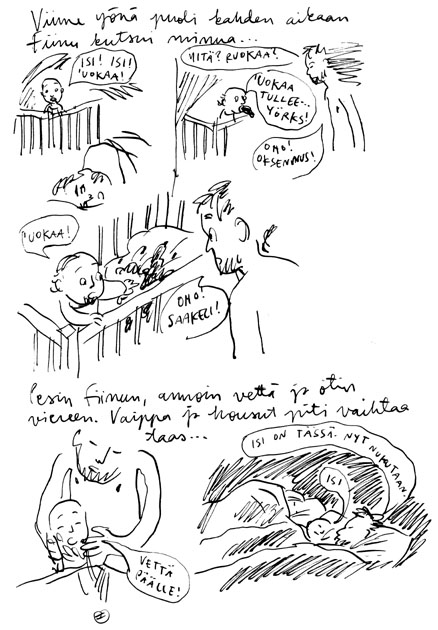 Viime yönä puoli kahden aikaan
Fiinu kutsui minua...
ISI! ISI!
'UOKAA!
MITÄ? RUOKAA?
'UOKAA
TULLEE...
YÖRKS!
OHO!
OKSENNUS!
'UOKAA!
OHO!
SAAKELI!
Pesin Fiinun, annoin vettä ja otin
viereen. Vaippa ja housut piti vaihtaa
taas...
VETTÄ
PÄÄLLE!
ISI ON TÄSSÄ. NYT NUKUTAAN.
ISI